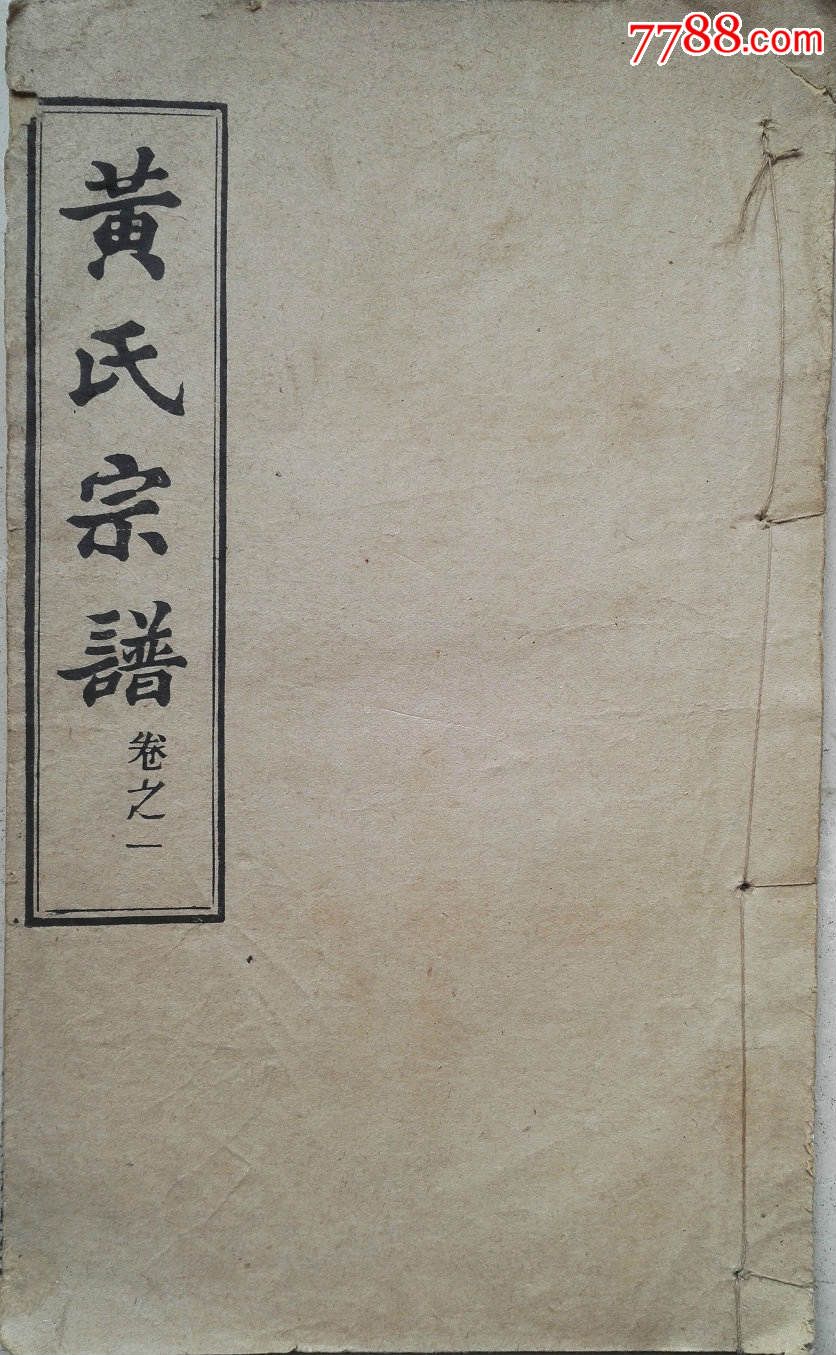 7788.com
黃氏宗譜
卷之一